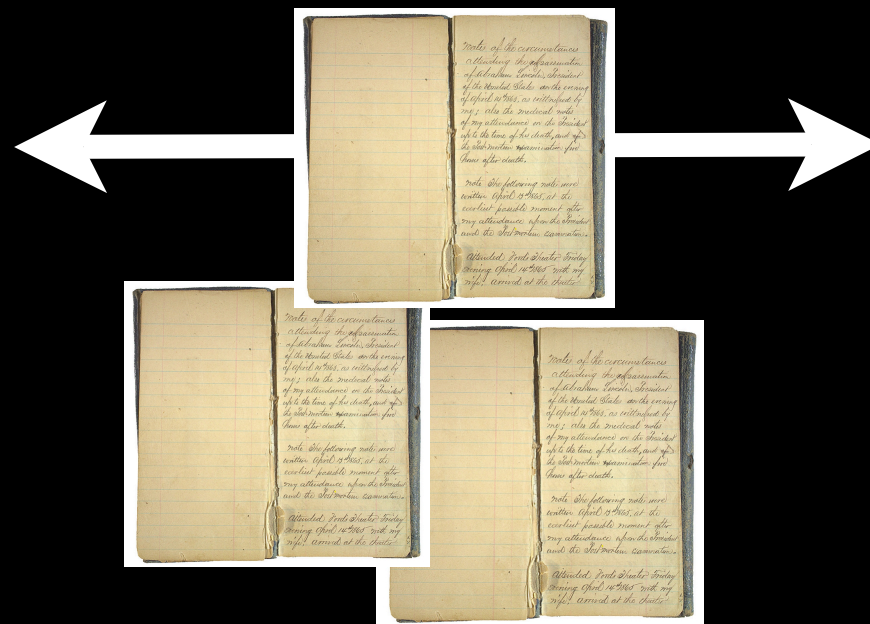 Notes of the circumstances
attending the assassination
of Abraham Lincoln, President
of the United States on the evening
of April 14th 1865, as witnessed by
my; also the medical notes
of my attendance on the President
up to the time of his death, and of
the Post mortem examination five
hours after death.
Note The following notes were
written April 15th 1865, at the
earliest possible moment after
my attendance upon the President
and the Post mortem examination.
Attended Fords Theater Friday
evening April 14th 1865 with my
wife! arrived at the theater
Notes of the circumstances
attending the assassination
of Abraham Lincoln, President
of the United States on the evening
of April 14th 1865, as witnessed by
my; also the medical notes
of my attendance on the President
up to the time of his death, and of
the Post mortem examination five
hours after death.
Note The following notes were
written April 15th 1865, at the
earliest possible moment after
my attendance upon the President
and the Post mortem examination.
Attended Fords Theater Friday
evening April 14th 1865 with my
wife! arrived at the theater
Notes of the circumstances
attending the assassination
of Abraham Lincoln, President
of the United States on the evening
of April 14th 1865, as witnessed by
my; also the medical notes
of my attendance on the President
up to the time of his death, and of
the Post mortem examination five
hours after death.
Note The following notes were
written April 15th 1865, at the
earliest possible moment after
my attendance upon the President
and the Post mortem examination.
Attended Fords Theater Friday
evening April 14th 1865 with my
wife! arrived at the theater